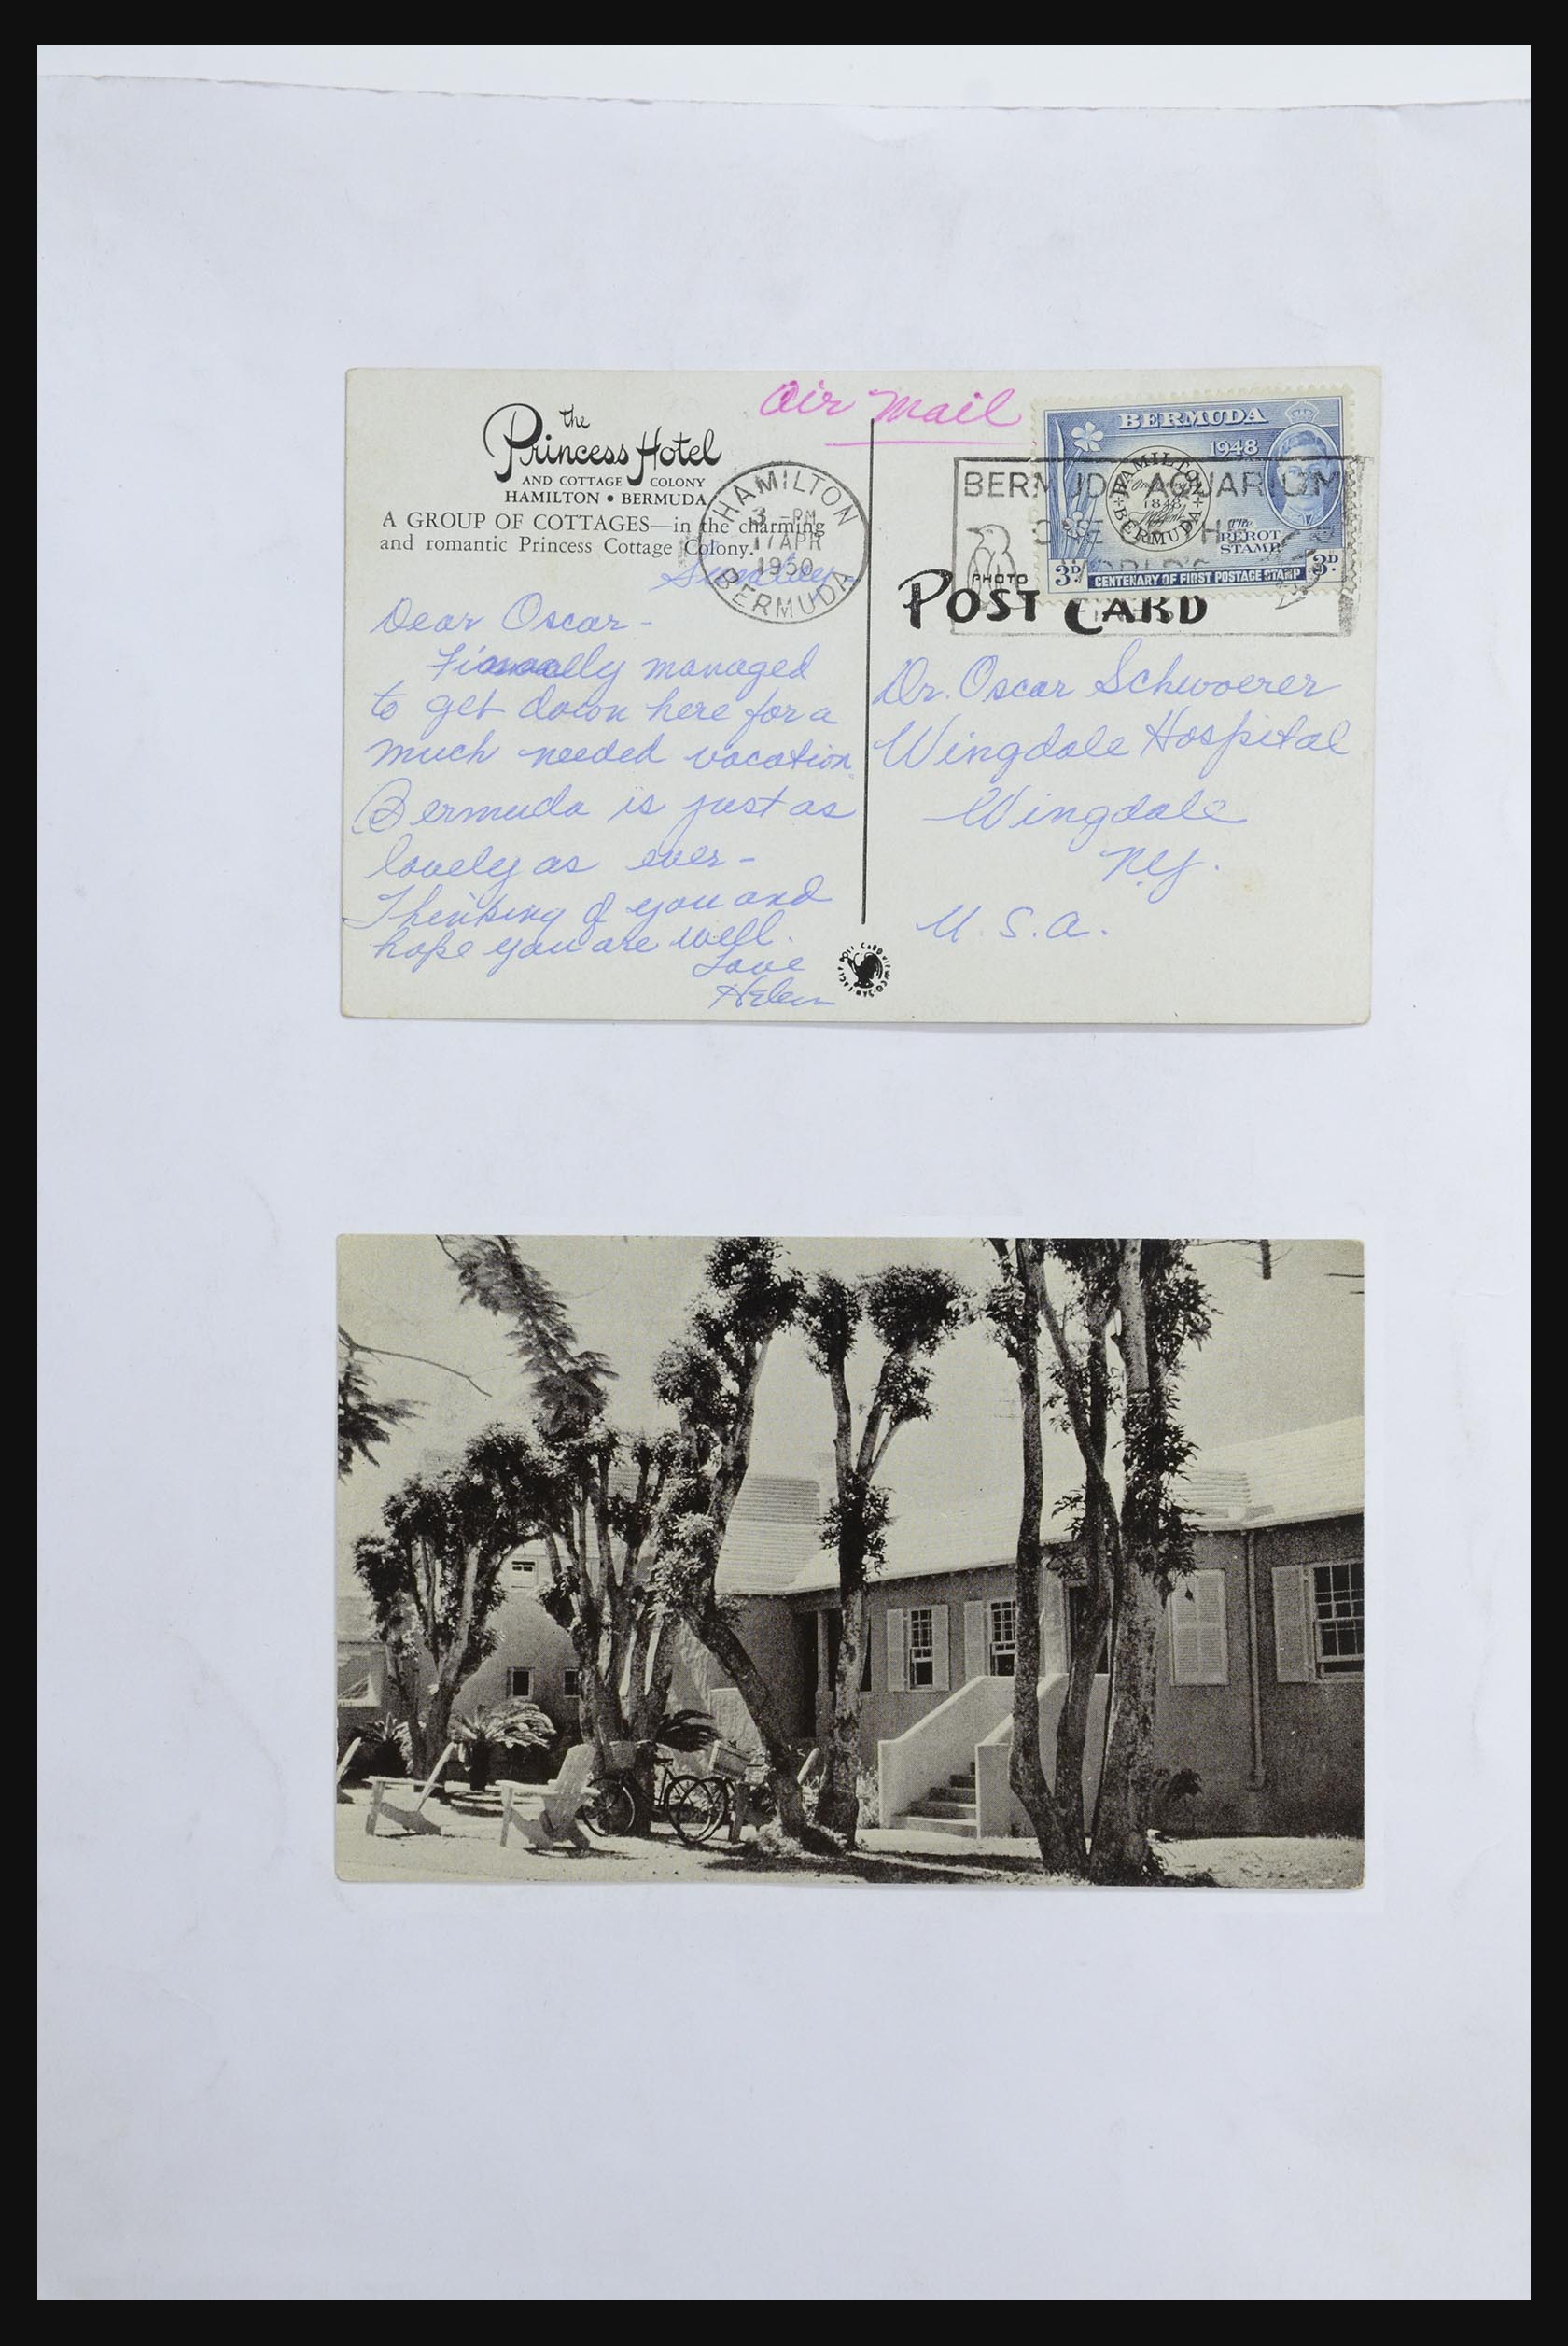 Air Mail
the
Princess Hotel
AND COTTAGE COLONY
HAMILTON • BERMUDA
A GROUP OF COTTAGES—in the charming
and romantic Princess Cottage Colony.
HAMILTON
3 - PM
17 APR
1950
BERMUDA
Sunday
Dear Oscar -
Finally managed
to get down here for a
much needed vacation
Bermuda is just as
lovely as ever -
Thinking of you and
hope you are well.
Love
Helen
BERMUDA
1948
HAMILTON
1848
BERMUDA
PEROT
STAMP
3D
CENTENARY OF FIRST POSTAGE STAMP
3D
BERMUDA AQUARIUM
ONE OF THE
WORLD'S
PHOTO
POST CARD
Dr. Oscar Schwoerer
Wingdale Hospital
Wingdale
N.Y.
U.S.A.